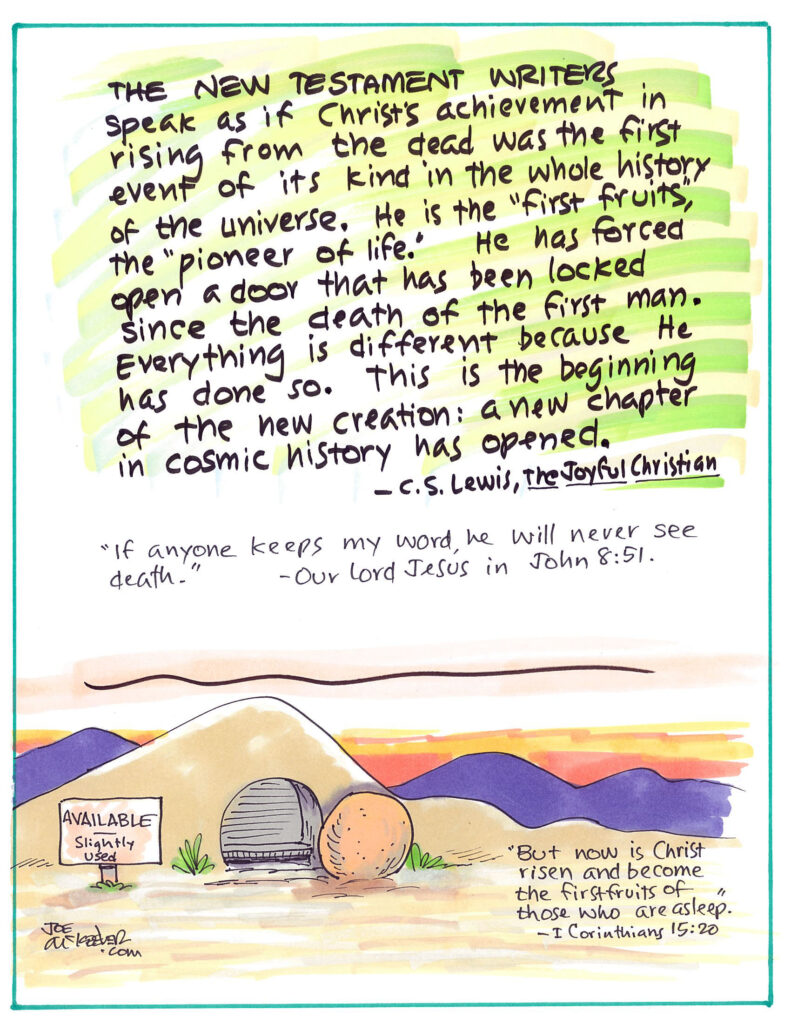 THE NEW TESTAMENT WRITERS
speak as if Christ's achievement in
rising from the dead was the first
event of its kind in the whole history
of the universe. He is the "first fruits",
the "pioneer of life." He has forced
open a door that has been locked
since the death of the first man.
Everything is different because He
has done so. This is the beginning
of the new creation: a new chapter
in cosmic history has opened.
- C.S. Lewis, The Joyful Christian
"If anyone keeps my word, he will never see
death." -Our Lord Jesus in John 8:51.
AVAILABLE
Slightly
Used
"But now is Christ
risen and become
the firstfruits of
those who are asleep."
- I Corinthians 15:20
JOE
McKEEVER
.com